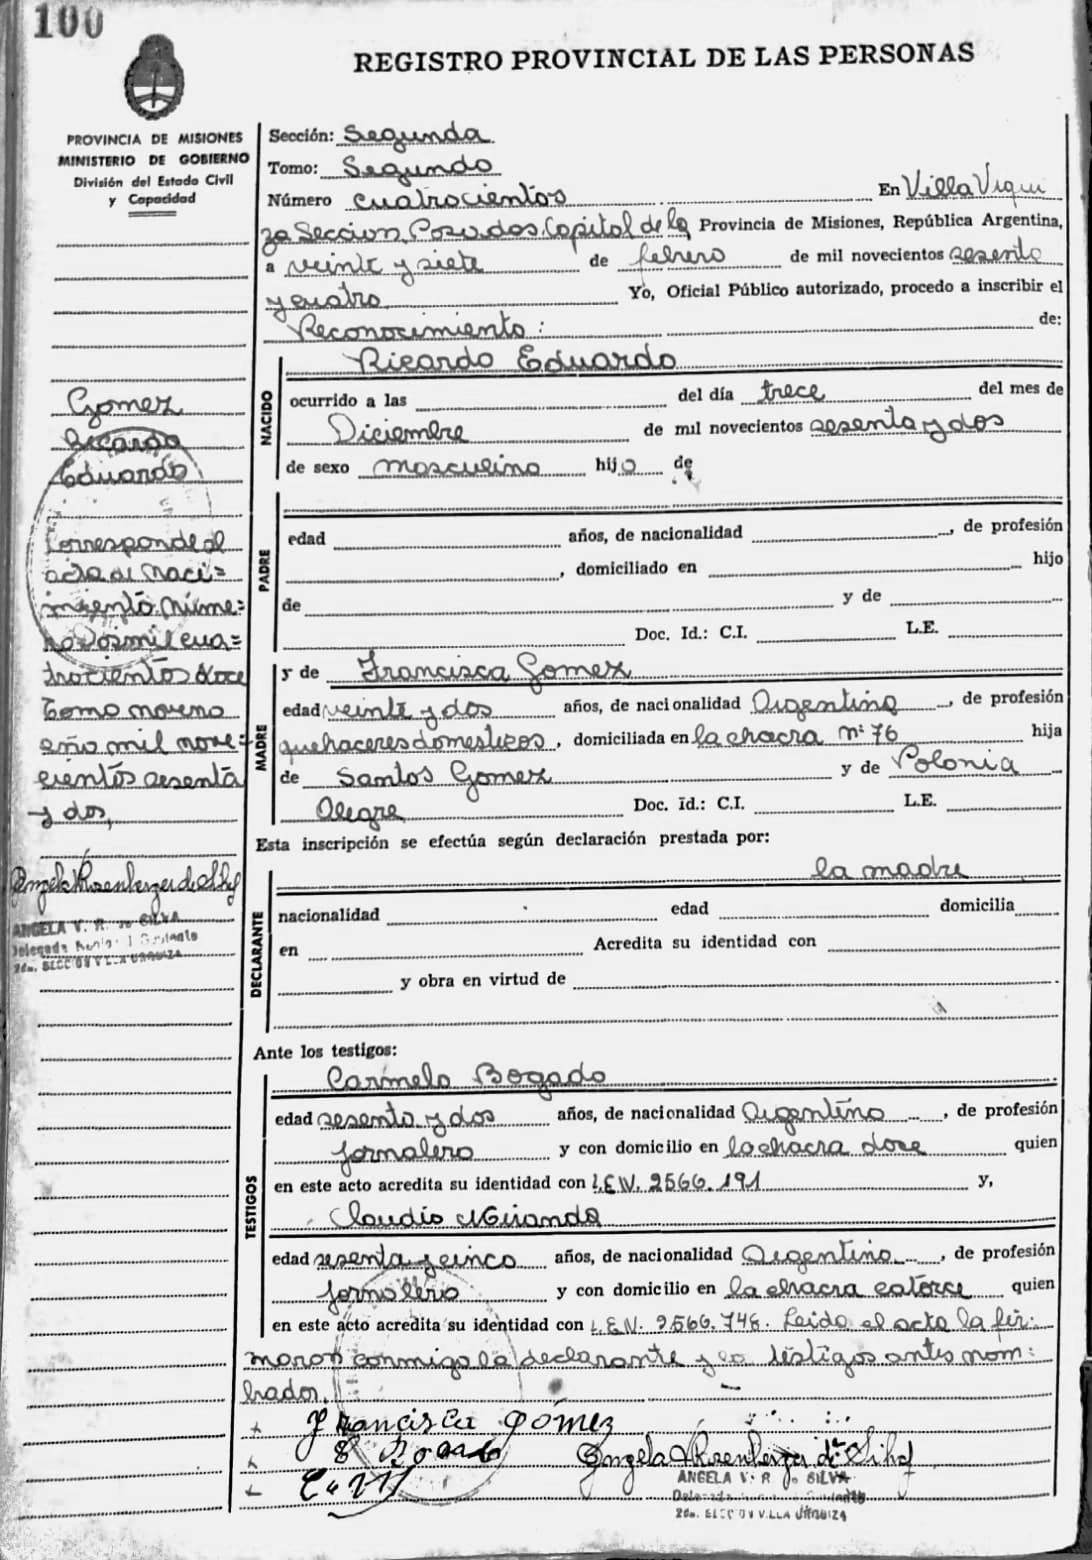 100
REGISTRO PROVINCIAL DE LAS PERSONAS
PROVINCIA DE MISIONES
MINISTERIO DE GOBIERNO
División del Estado Civil
y Capacidad
Gomez
Ricardo
Eduardo
Corresponde al
acta de naci=
miento núme=
ro dos mil cua=
trocientos doce
Tomo noveno
año mil nove=
cientos sesenta
y dos,
Angela Rosenberger de Silva
ANGELA V. R. de SILVA
2da. SECCION VILLA URQUIZA
Sección: Segunda
Tomo: Segundo
Número cuatrocientos En Villa Urqui
za Seccion, Posadas, Capital de la Provincia de Misiones, República Argentina,
a veinte y siete de febrero de mil novecientos sesenta
y cuatro Yo, Oficial Público autorizado, procedo a inscribir el
Reconocimiento: de:
NACIDO
Ricardo Eduardo
ocurrido a las del día trece del mes de
Diciembre de mil novecientos sesenta y dos
de sexo masculino hijo de
PADRE
edad años, de nacionalidad , de profesión
, domiciliado en hijo
de y de
Doc. Id.: C.I. L.E.
MADRE
y de Francisca Gomez
edad veinte y dos años, de nacionalidad Argentina, de profesión
quehaceres domesticos, domiciliada en la chacra nº 76 hija
de Santos Gomez y de Polonia
Alegre Doc. Id.: C.I. L.E.
Esta inscripción se efectúa según declaración prestada por:
DECLARANTE
la madre
nacionalidad edad domicilia
en Acredita su identidad con
y obra en virtud de
Ante los testigos:
TESTIGOS
Carmelo Bogado
edad sesenta y dos años, de nacionalidad Argentino, de profesión
jornalero y con domicilio en la chacra doce quien
en este acto acredita su identidad con L.E.N. 2566.191 y,
Claudio Miranda
edad sesenta y cinco años, de nacionalidad Argentino, de profesión
jornalero y con domicilio en la chacra catorce quien
en este acto acredita su identidad con L.E.N. 2566.748. Leida el acta la fir-
maron conmigo la declarante y los testigos antes nom:
brados.
Francisca Gómez
Angela Rosenberger de Silva
ANGELA V. R. de SILVA
2da. SECCION VILLA URQUIZA